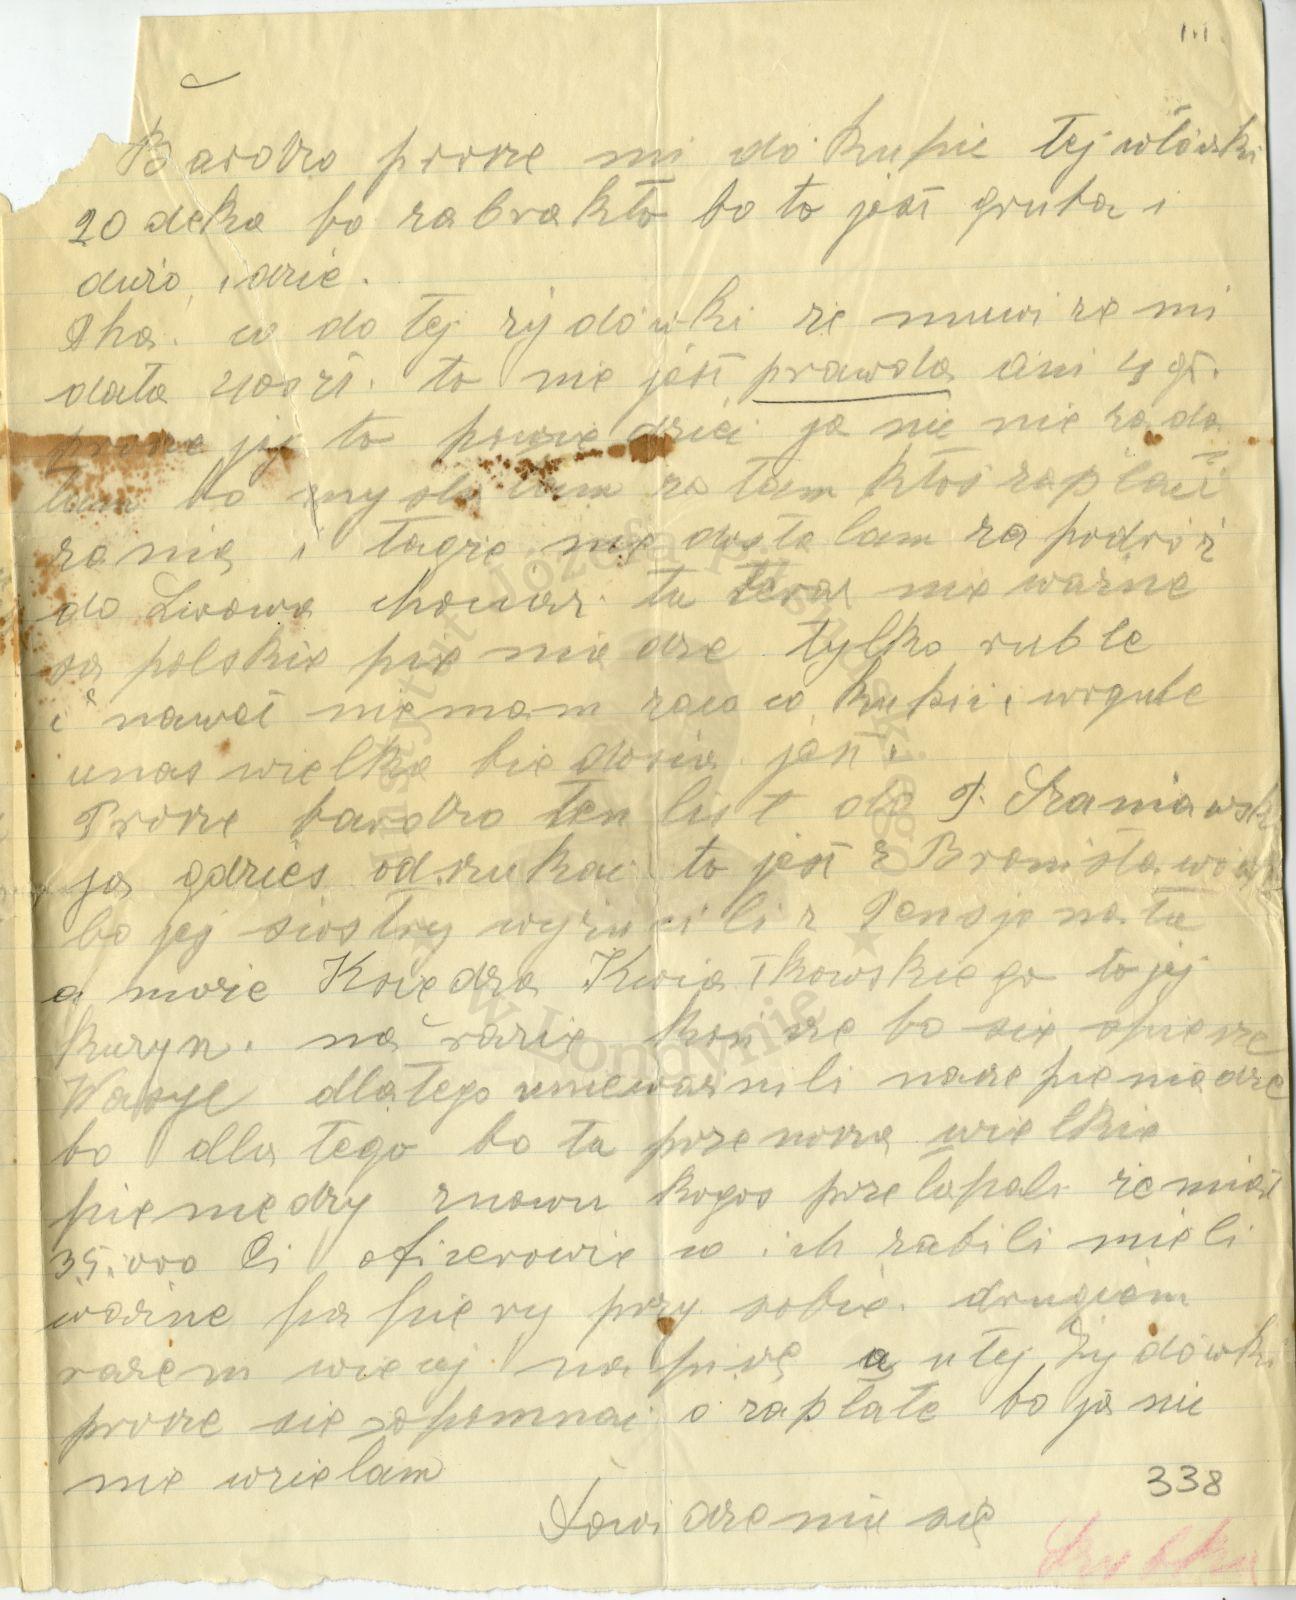 Bardzo prosze mi do kupic tej włóczki
20 deka bo zabrakło bo to jest gruba i
dużo idzie.
Aha. co do tej żydówki że muwi że mi
data 400 zł. to nie jest prawda ani 4 gr.
prosze jej to powiedzieć ja nic nie żąda
łam bo myslałam ze tam ktoś zapłacił
za nią i tagże nie dostałam za podróż
do Lwowa chociaż. tu teraz nie ważne
są polskie pieniedze tylko ruble
i nawet niemam zaco kupić i wogule
unas wielka biedosia jest.
Prosze bardzo ten list do P. Szaniawsk
ja gdzieś odszukać to jest z Bronisława
bo jej siostry wyżucili z Pensjonatu
a może Ksiedza Kwiatkowskiego to jej
kuzyn. na razie koncze bo sie spiesze
Wasyl dlatego uniewaznili nasze pieniedze
bo dla tego bo tu przenosza wielkie
pieniedzy znowu kogos przełapali że miał
35.000 Ci oficerowie co ich zabili mieli
ważne papiery przy sobie. drugiem
razem wiecej napiszę a utej Żydówki
prosze sie zapomnac o zapłate bo ja nic
nie wzielam
Dowidzenie się
338